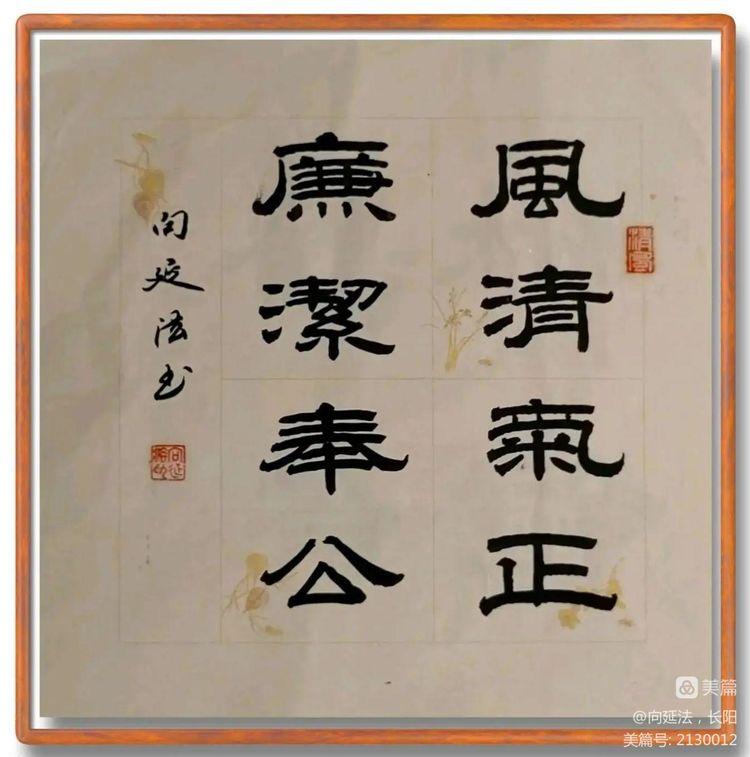 風清氣正
廉潔奉公
向延法书
清風
向延法印
美篇
@向延法，长阳
美篇号: 2130012